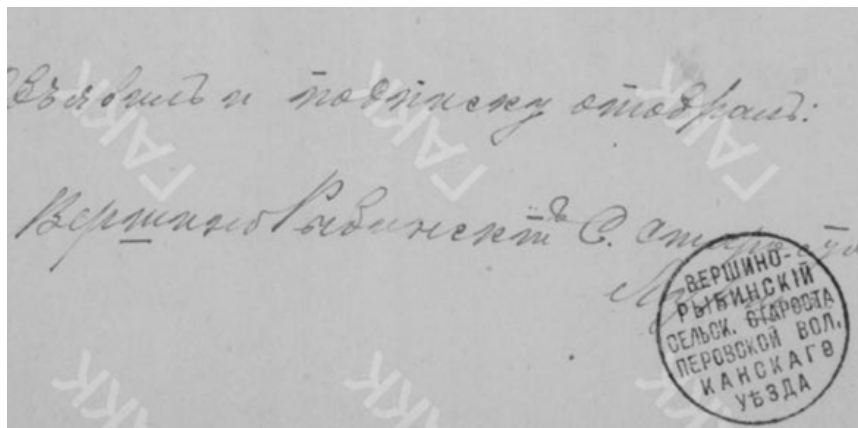 Объявилъ и подписку отобралъ:
Вершино Рыбинскій С. Староста
ВЕРШИНО-
РЫБИНСКІЙ
СЕЛЬСК. СТАРОСТА
ПЕРОВСКОЙ ВОЛ.
КАНСКАГО
УѢЗДА
ГАКК
ГАКК
ГАКК
ГАКК
ГАКК
ГАКК